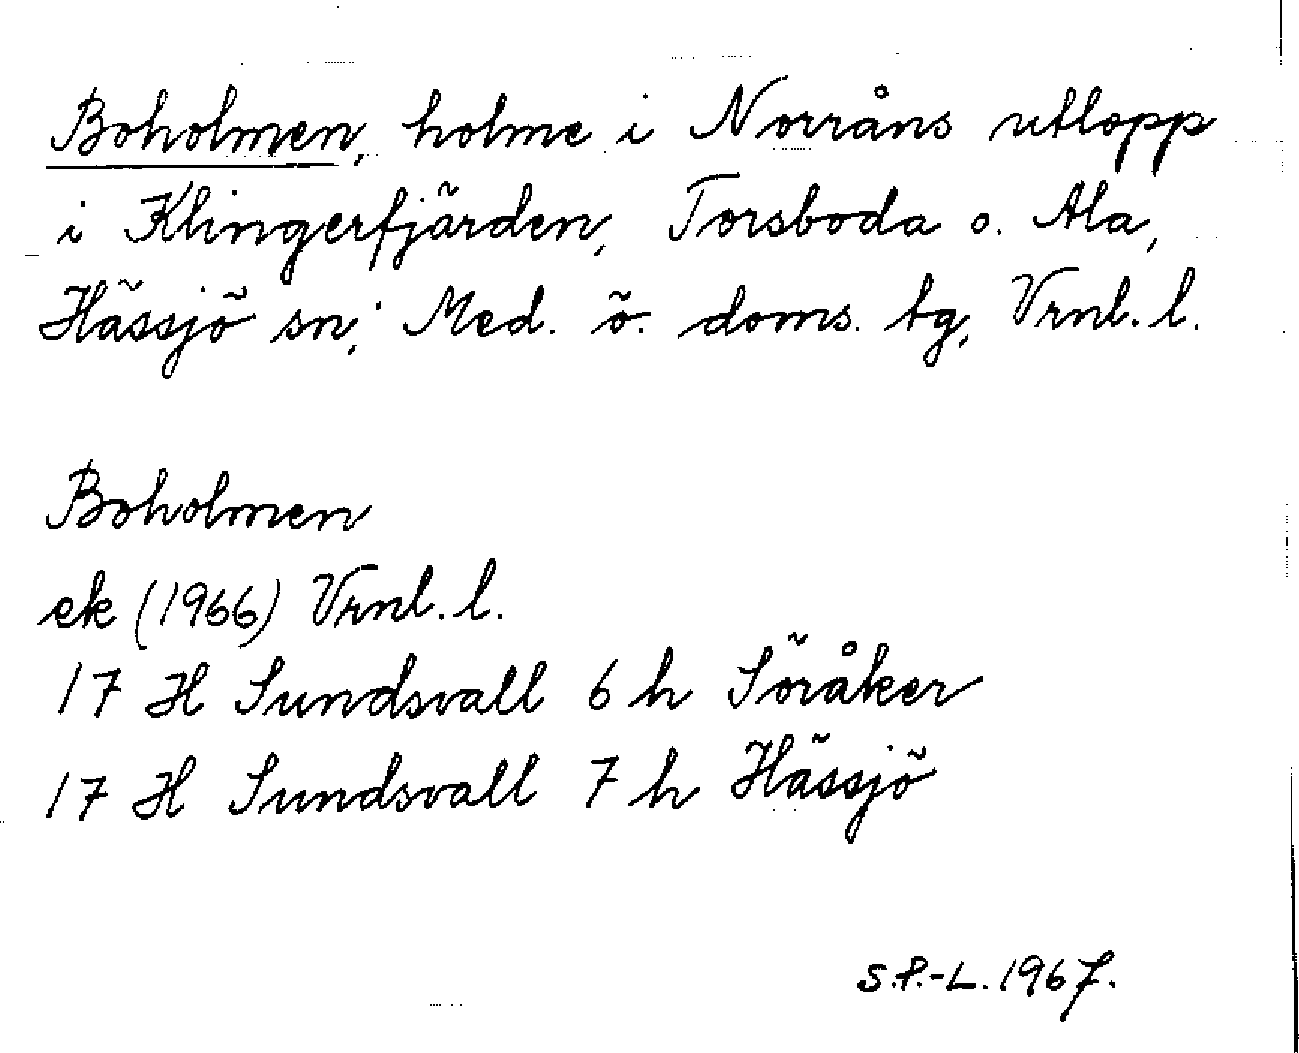 Boholmen, holme i Norråns utlopp
i Klingerfjärden, Torsboda o. Ala,
Hässjö sn, Med. ö. doms. tg, Vrnl. l.
Boholmen
ek (1966) Vrnl. l.
17 H Sundsvall 6 h Söråker
17 H Sundsvall 7 h Hässjö
S.P.-L. 1967.